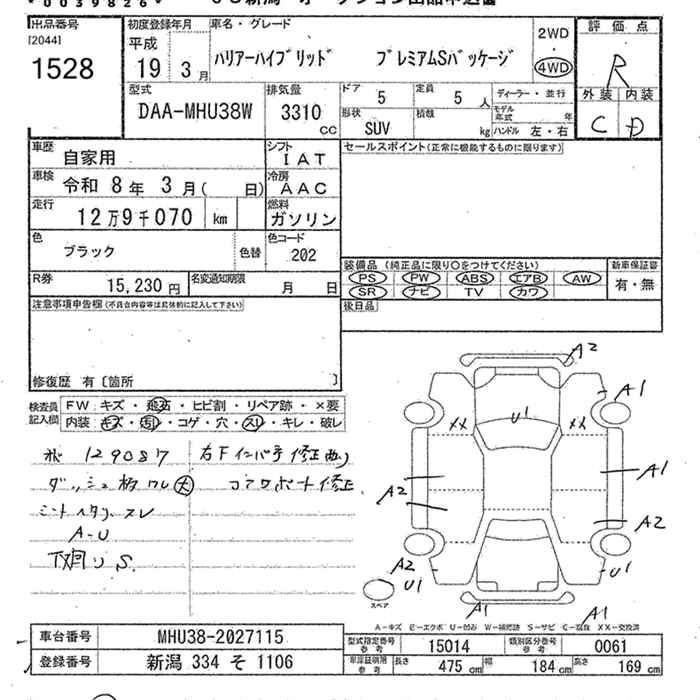 *0039826*
出品番号
[2044]
1528
初度登録年月
平成
19 3 月
車名・グレード
ハリアーハイブリッド プレミアムSパッケージ
2WD
・
4WD
評価点
R
外装 内装
C D
型式
DAA-MHU38W
排気量
3310
cc
ドア 5
定員 5 人
形状 SUV
積載 kg
ディーラー・並行
モデル年式 年
ハンドル 左・右
車歴 自家用
シフト IAT
車検 令和 8 年 3 月( 日)
冷房 AAC
走行 12万9千070 km
燃料 ガソリン
色 ブラック
色替
色コード 202
R券 15,230 円
名変通知期限 月 日
セールスポイント(正常に機能するものに限ります)
装備品 (純正品に限り○をつけてください)
PS PW ABS エアB AW
SR ナビ TV カワ
新車保証書
有・無
後日品
注意事項申告欄(不具合内容等は具体的に記入して下さい)
修復歴 有〔箇所 〕
検査員記入欄
FW: キズ・飛石・ヒビ割・リペア跡・×要
内装: キズ・汚レ・コゲ・穴・スレ・キレ・破レ
129087
右Fインパネ修正
ダッシュ柄ワレ大
コアサポート修正
シートヘタリ、スレ
A-U
下廻リ S
A2
A1
U1
XX
XX
A1
A2
A2
A2
U1
U1
A1
A1
スペア
A-キズ E-エクボ U-凹み W-補修跡 S-サビ C-腐食 XX-交換済
車台番号 MHU38-2027115
登録番号 新潟 334 そ 1106
型式指定番号 参考 15014
類別区分番号 参考 0061
車庫証明用 参考 長さ 475 cm 幅 184 cm 高さ 169 cm